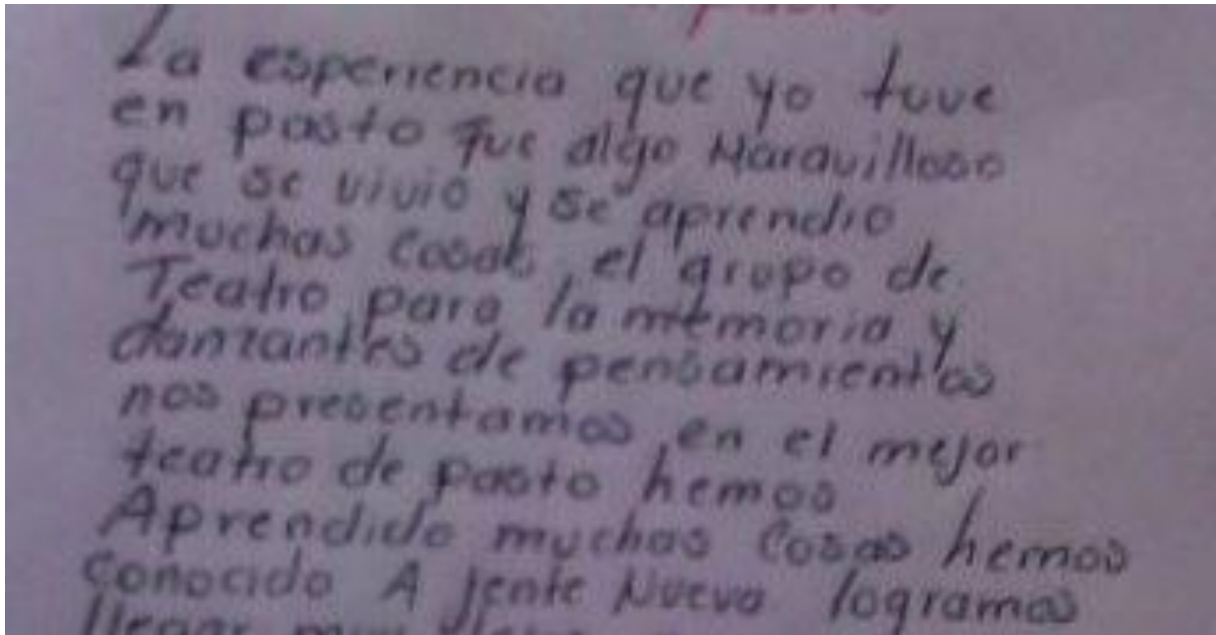 pasto
La esperiencia que yo tuve
en pasto fue algo Maravilloso
que se vivio y se aprendio
muchas cosas, el grupo de
Teatro para la memoria y
danzantes de pensamientos
nos presentamos en el mejor
teatro de pasto hemos
Aprendido muchas Cosas hemos
Conocido A jente Nueva logramos
llegar muy